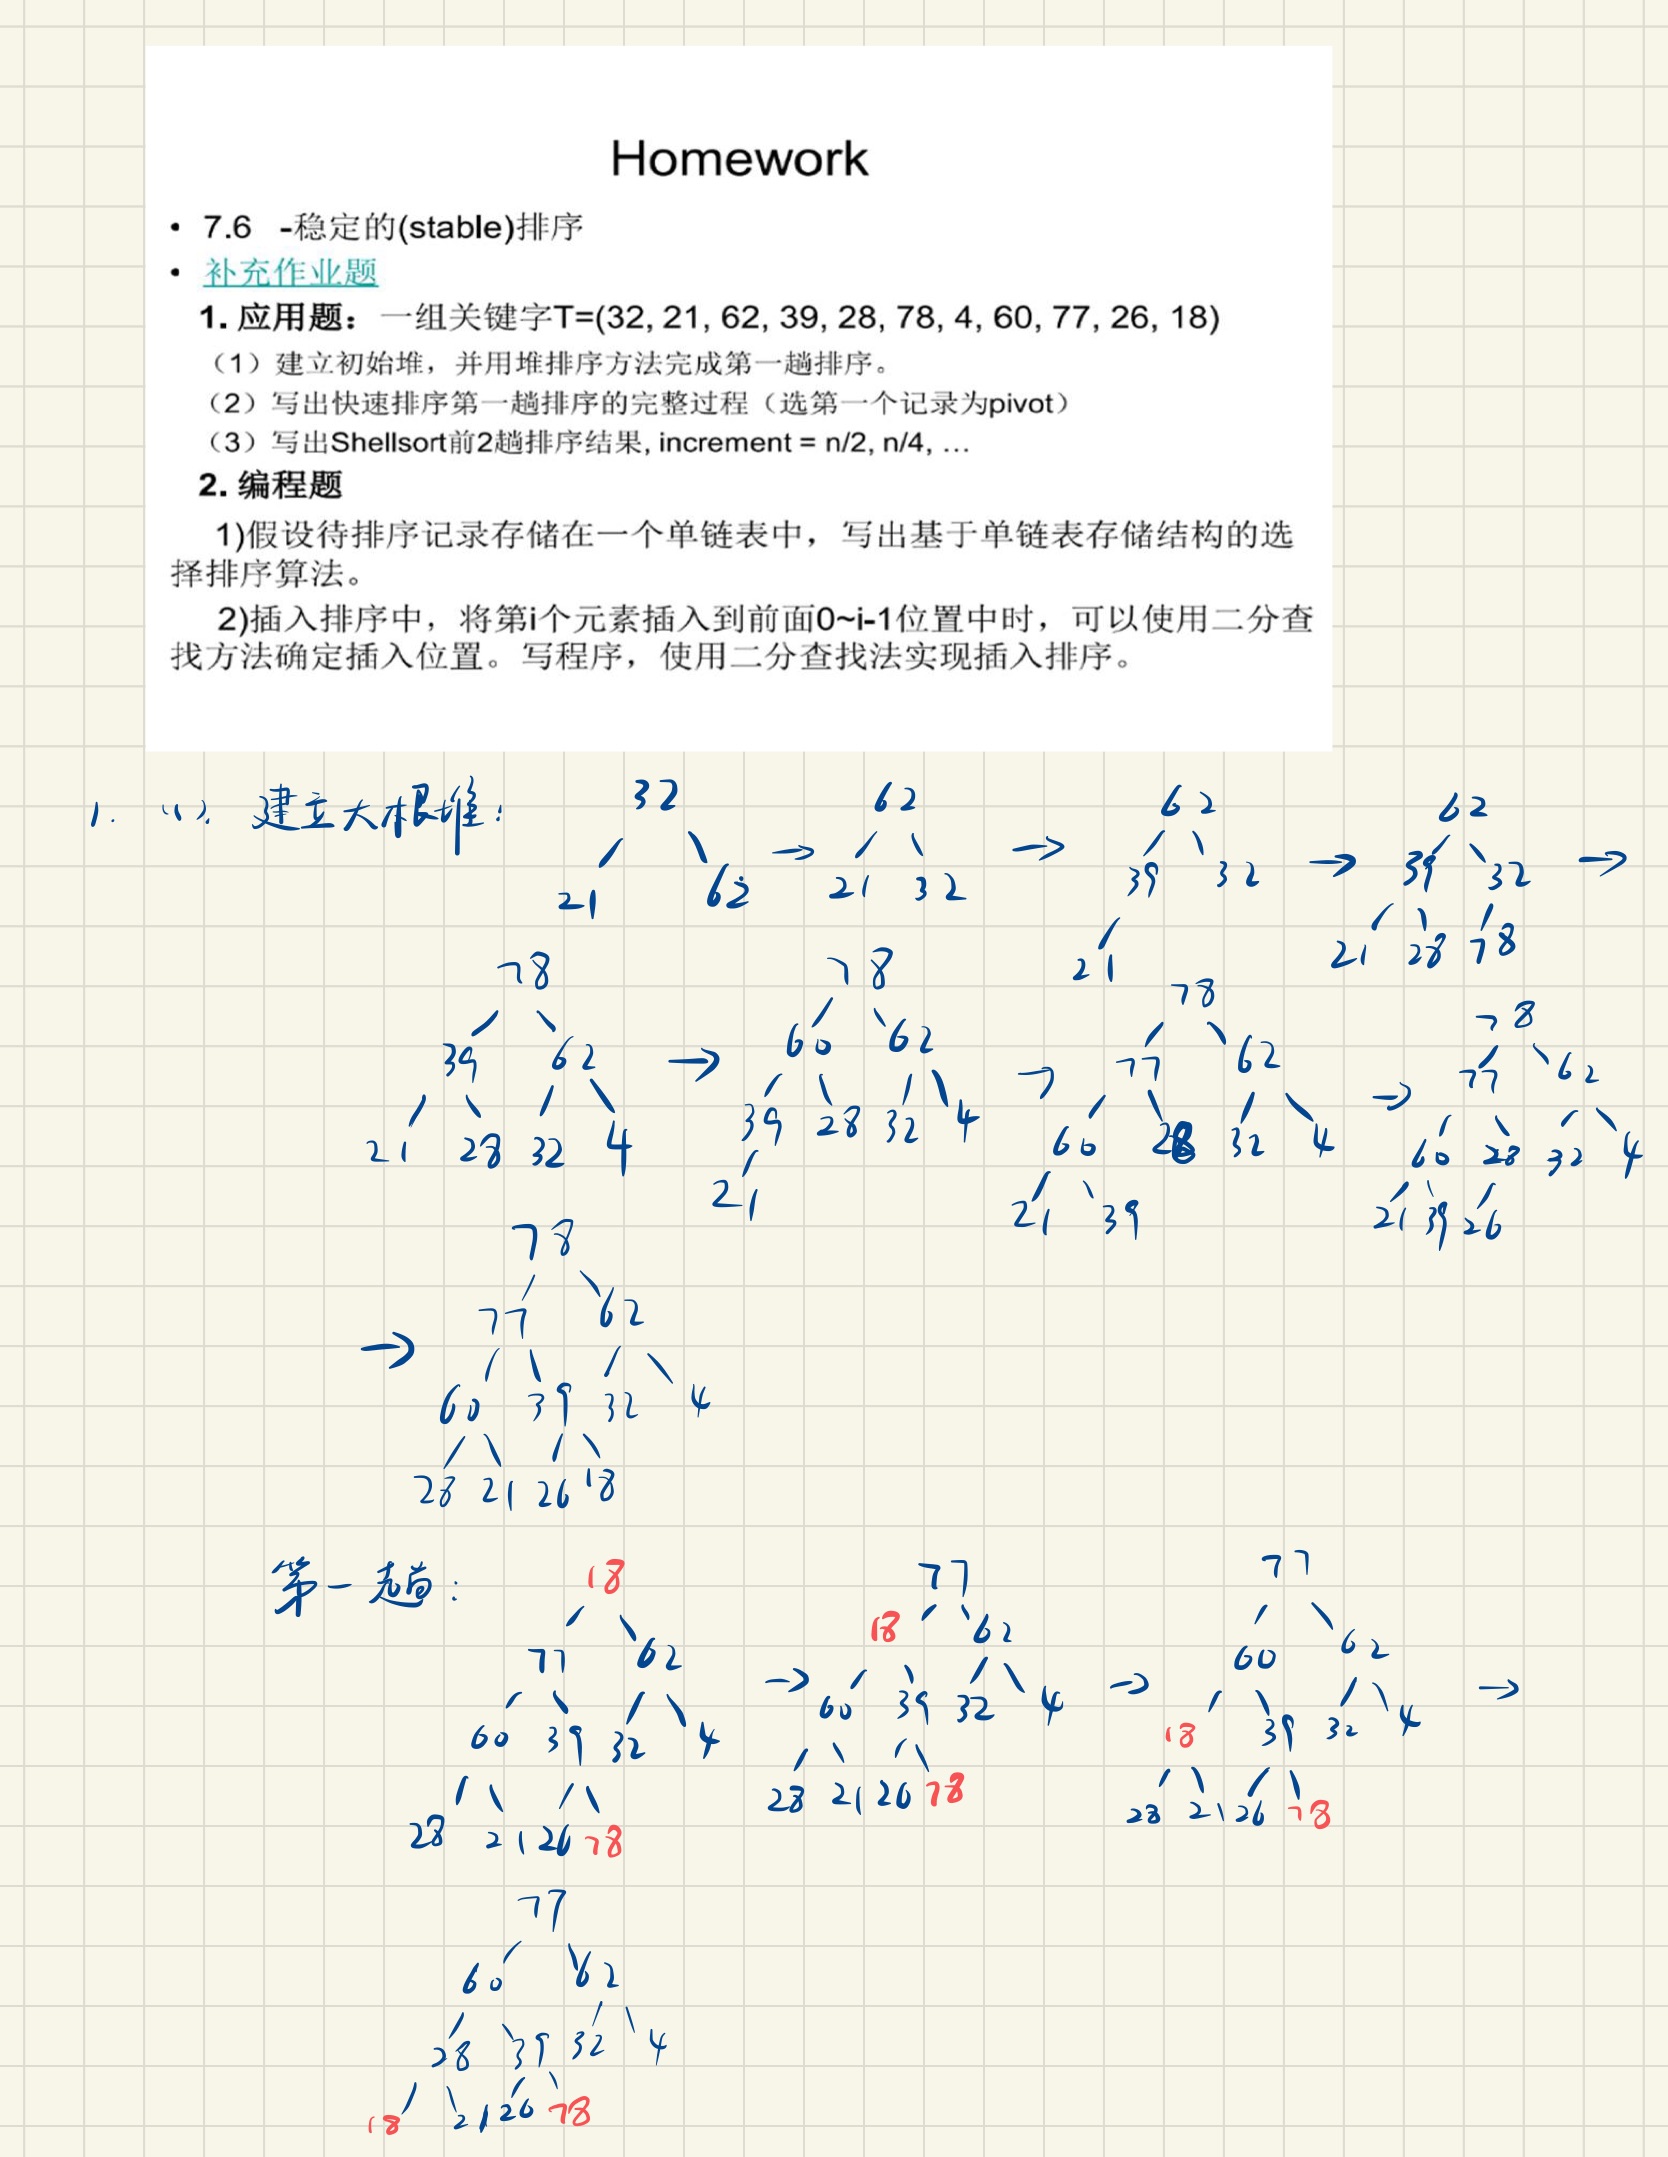 Homework
• 7.6 -稳定的(stable)排序
• 补充作业题
1. 应用题：一组关键字T=(32, 21, 62, 39, 28, 78, 4, 60, 77, 26, 18)
（1）建立初始堆，并用堆排序方法完成第一趟排序。
（2）写出快速排序第一趟排序的完整过程（选第一个记录为pivot）
（3）写出Shellsort前2趟排序结果, increment = n/2, n/4, …
2. 编程题
1)假设待排序记录存储在一个单链表中，写出基于单链表存储结构的选
择排序算法。
2)插入排序中，将第i个元素插入到前面0~i-1位置中时，可以使用二分查
找方法确定插入位置。写程序，使用二分查找法实现插入排序。
1. (1). 建立大根堆: 32 → 62 → 62 → 62 →
21 62 21 32 39 32 39 32
21 21 28 78
78 → 78 → 78 → 78
39 62 60 62 77 62 77 62
21 28 32 4 39 28 32 4 60 28 32 4 60 28 32 4
21 21 39 21 39 26
→ 78
77 62
60 39 32 4
28 21 26 18
第一趟: 18 → 77 → 77 →
77 62 18 62 60 62
60 39 32 4 60 39 32 4 18 39 32 4
28 21 26 78 28 21 26 78 28 21 26 78
77
60 62
28 39 32 4
18 21 26 78